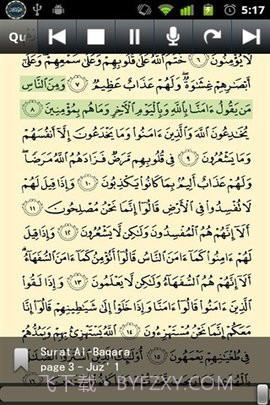 5:17
Qu
لَا يُؤْمِنُونَ ٦ خَتَمَ اللَّهُ عَلَىٰ قُلُوبِهِمْ وَعَلَىٰ سَمْعِهِمْ وَعَلَىٰ
أَبْصَارِهِمْ غِشَاوَةٌ وَلَهُمْ عَذَابٌ عَظِيمٌ ٧ وَمِنَ النَّاسِ
مَن يَقُولُ آمَنَّا بِاللَّهِ وَبِالْيَوْمِ الْآخِرِ وَمَا هُم بِمُؤْمِنِينَ ٨
يُخَادِعُونَ اللَّهَ وَالَّذِينَ آمَنُوا وَمَا يَخْدَعُونَ إِلَّا أَنفُسَهُمْ
وَمَا يَشْعُرُونَ ٩ فِي قُلُوبِهِم مَّرَضٌ فَزَادَهُمُ اللَّهُ مَرَضًا
وَلَهُمْ عَذَابٌ أَلِيمٌ بِمَا كَانُوا يَكْذِبُونَ ١٠ وَإِذَا قِيلَ لَهُمْ
لَا تُفْسِدُوا فِي الْأَرْضِ قَالُوا إِنَّمَا نَحْنُ مُصْلِحُونَ ١١
أَلَا إِنَّهُمْ هُمُ الْمُفْسِدُونَ وَلَٰكِن لَّا يَشْعُرُونَ ١٢ وَإِذَا قِيلَ
لَهُمْ آمِنُوا كَمَا آمَنَ النَّاسُ قَالُوا أَنُؤْمِنُ كَمَا آمَنَ السُّفَهَاءُ
أَلَا إِنَّهُمْ هُمُ السُّفَهَاءُ وَلَٰكِن لَّا يَعْلَمُونَ ١٣ وَإِذَا لَقُوا
الَّذِينَ آمَنُوا قَالُوا آمَنَّا وَإِذَا خَلَوْا إِلَىٰ شَيَاطِينِهِمْ قَالُوا إِنَّا
مَعَكُمْ إِنَّمَا نَحْنُ مُسْتَهْزِئُونَ ١٤ اللَّهُ يَسْتَهْزِئُ بِهِمْ وَيَمُدُّهُمْ
فِي طُغْيَانِهِمْ يَعْمَهُونَ ١٥
Surat Al-Baqara
page 3 - Juz' 1
飞下载 BYFZXZ.COM